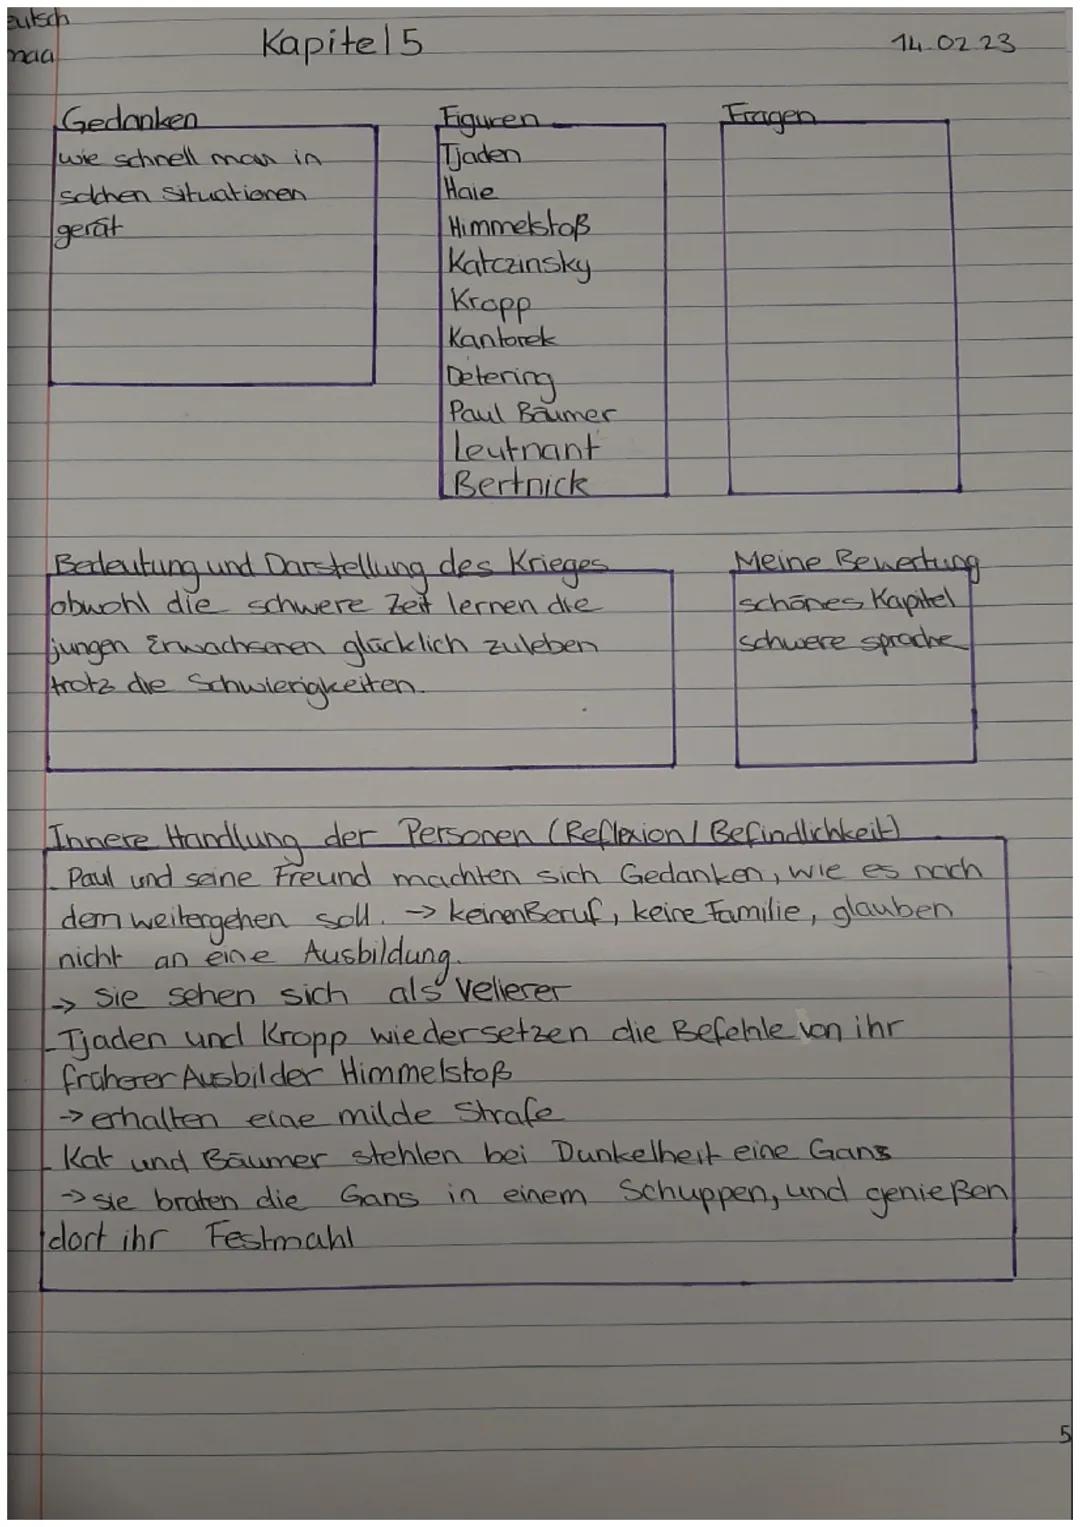 Kapitel 5
14.02.23
Gedanken
wie schnell man in
solchen situationen
gerät
Figuren
Tjaden
Haie
Himmelstoß
Katczinsky
Kropp
Kantorek
Detering
Paul Bäumer
Leutnant
Bertnick
Fragen
Bedeutung und Darstellung des Krieges
obwohl die schwere Zeit lernen die
jungen Erwachsenen glücklich zuleben
trotz die Schwierigkeiten.
Meine Bewertung
schönes Kapitel
schwere sprache
Innere Handlung der Personen (Reflexion / Befindlichkeit)
- Paul und seine Freund machten sich Gedanken, wie es nach
dem weitergehen soll. → keinen Beruf, keine Familie, glauben
nicht an eine Ausbildung.
→ sie sehen sich als Velierer
- Tjaden und Kropp wiedersetzen die Befehle von ihr
früherer Ausbilder Himmelstoß
→ erhalten eine milde Strafe
- Kat und Bäumer stehlen bei Dunkelheit eine Gans
→ sie braten die Gans in einem Schuppen, und genießen
dort ihr Festmahl
5